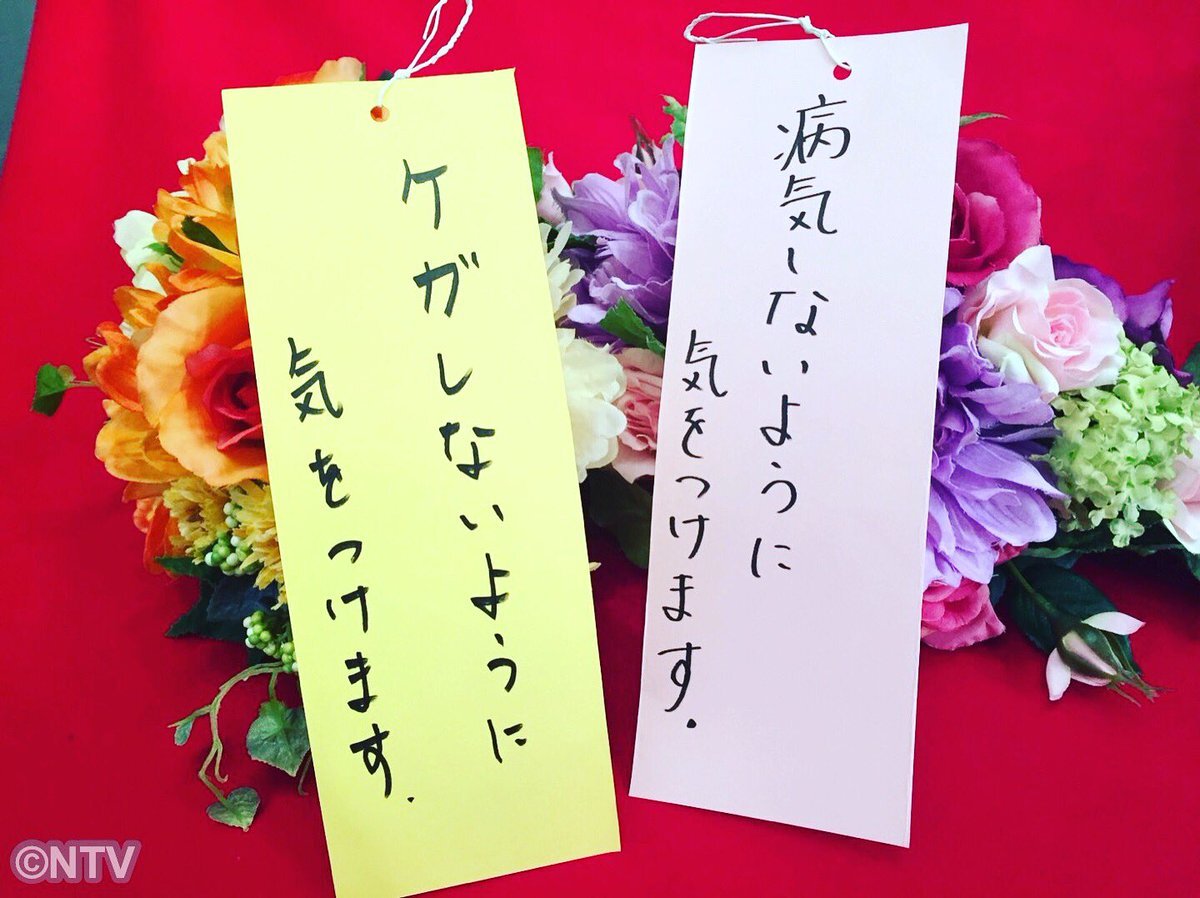 病気しないように
気をつけます.
ケガしないように
気をつけます.
©NTV